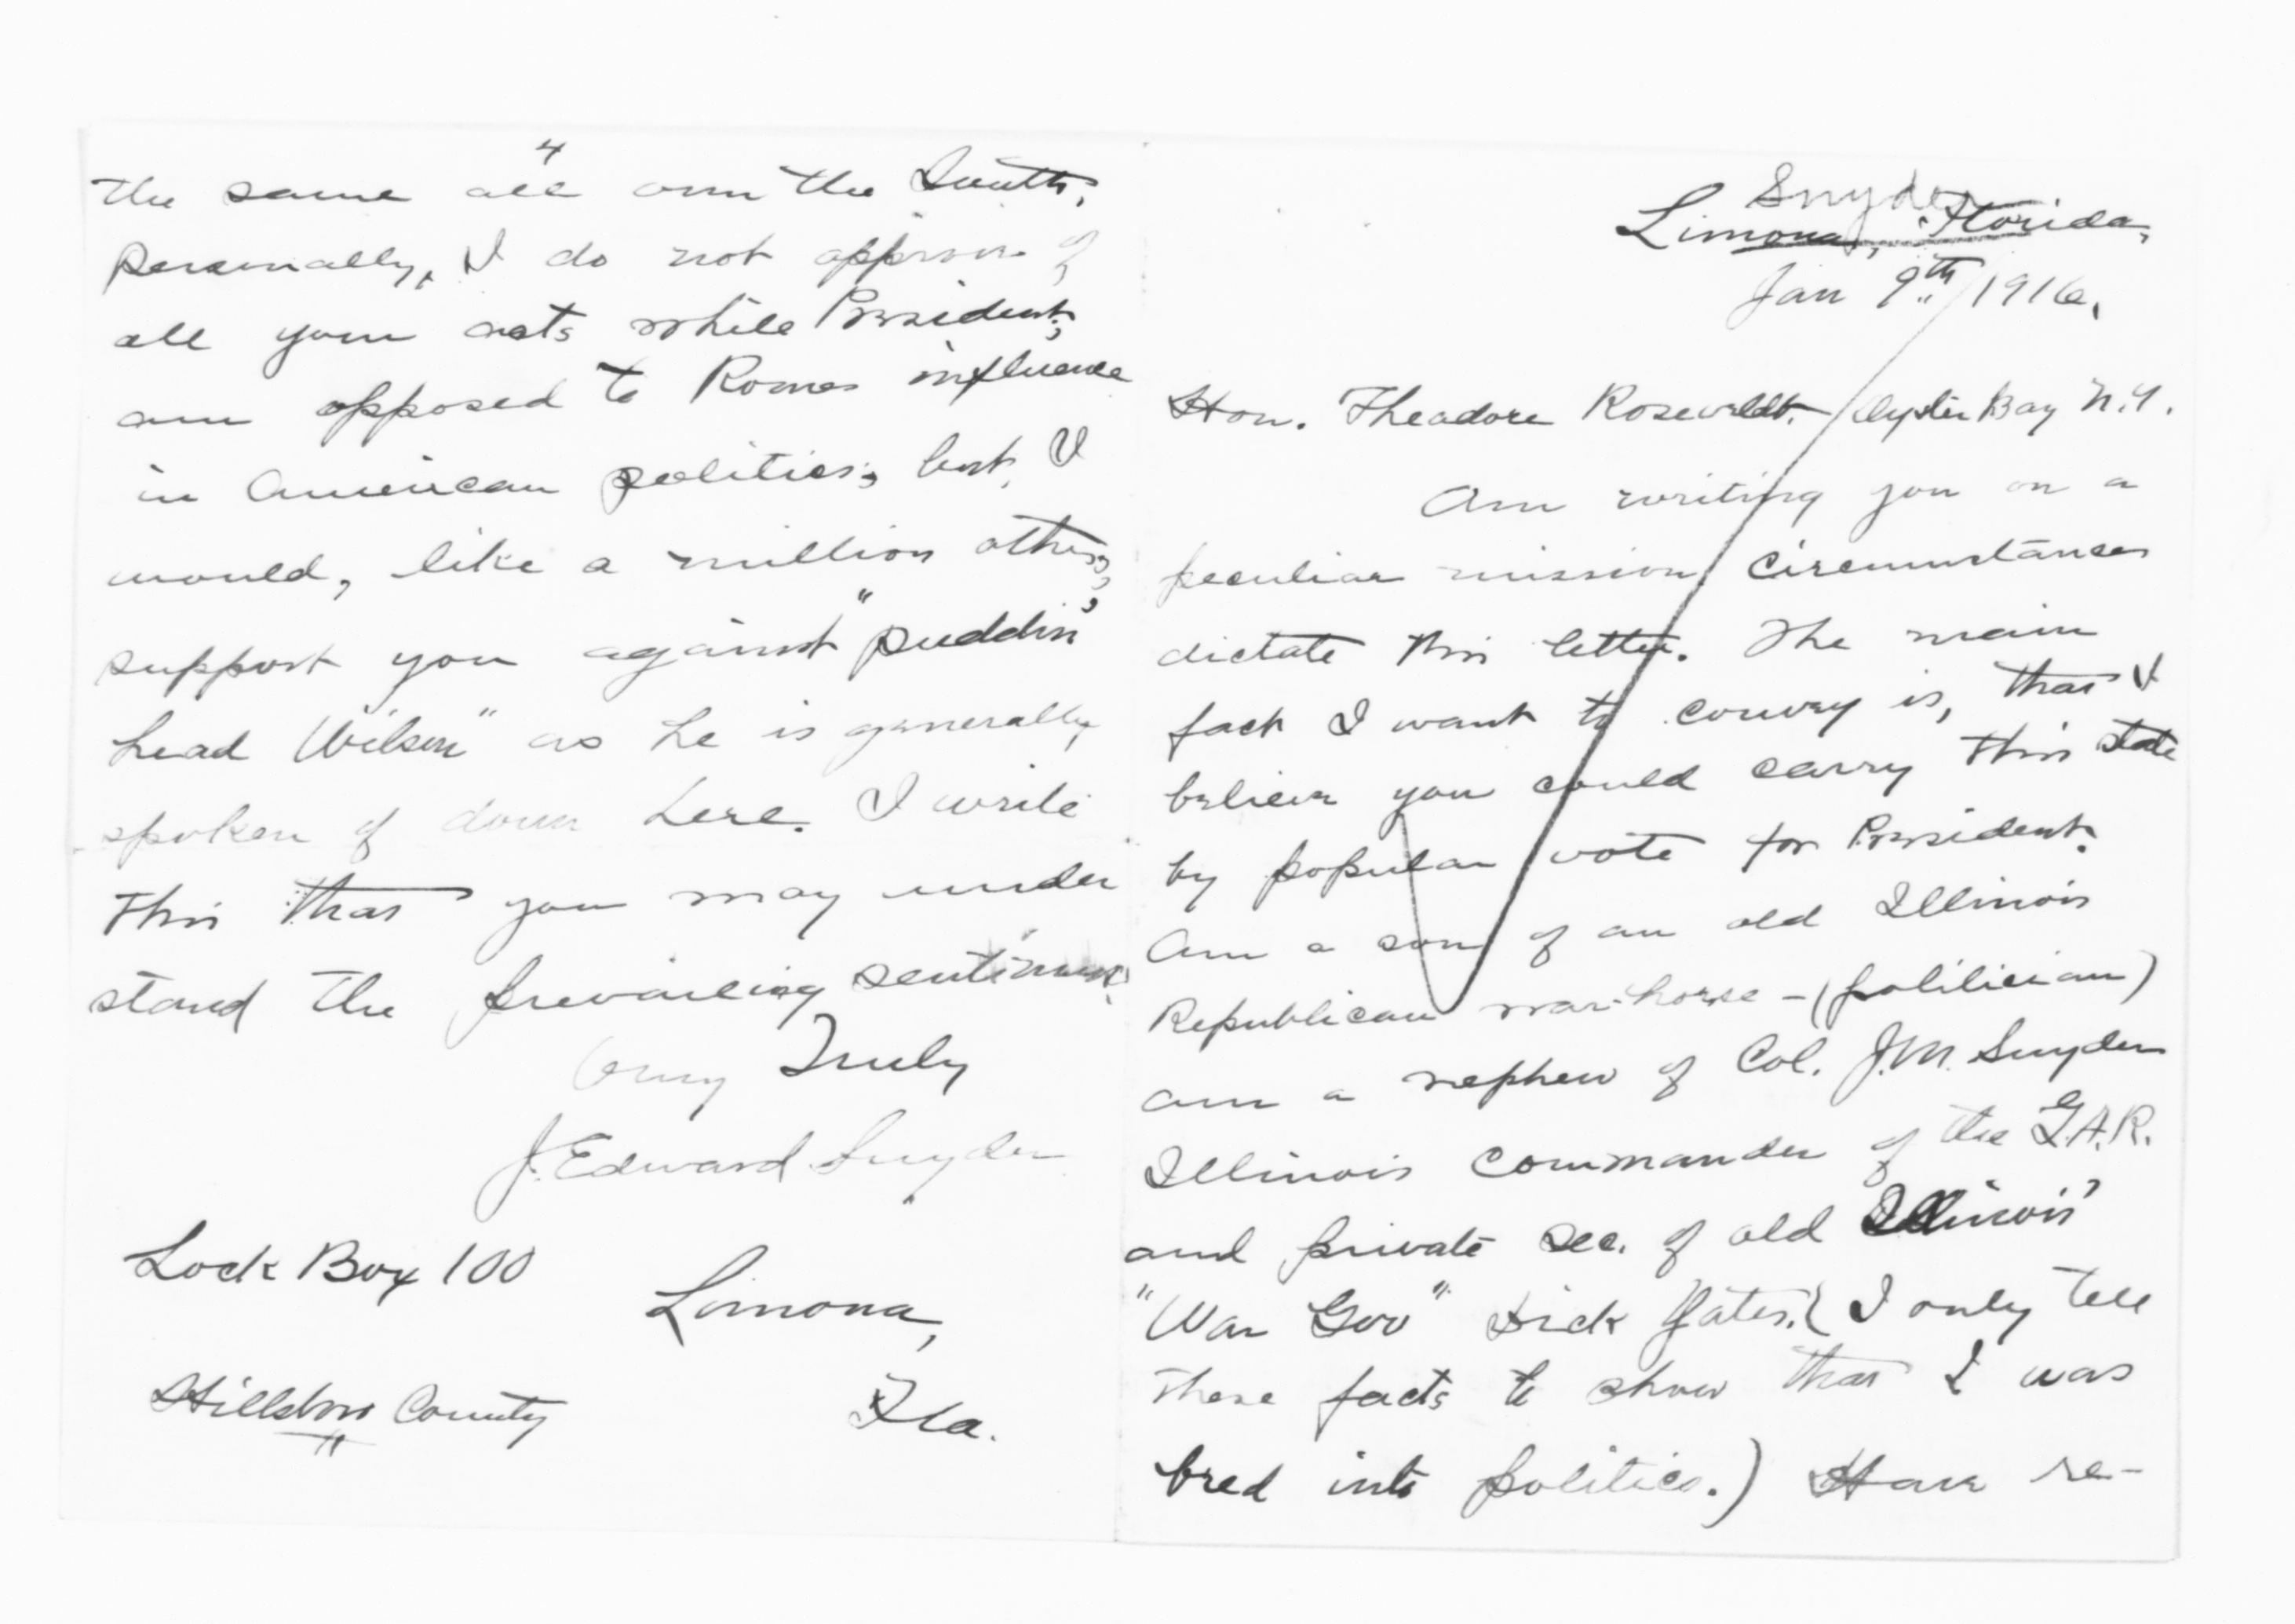 Snyder
Limona, Florida,
Jan 9th 1916.
Hon. Theadore Roseveldt. Oyster Bay N.Y.
Am writing you on a
peculiar mission circumstances
dictate this letter. The main
fact I want to convey is, that I
believe you could carry this state
by popular vote for President.
Am a son of an old Illinois
Republican war-horse - (politician)
am a nephew of Col. J.M. Snyder
Illinois Commander of the G.A.R.
and private sec. of old Illinois'
"War Gov" Dick Yates. (I only tell
these facts to show that I was
bred into politics.) Have re-
4
the same all over the South,
Personally, I do not approve of
all your acts while President,
am opposed to Romes influence
in American politics, but, I
would, like a million others,
support you against "puddin'
head Wilson" as he is generally
spoken of down here. I write
this that you may under
stand the prevailing sentiment.
Very Truly
J. Edward Snyder
Lock Box 100
Limona,
Hillsboro County
Fla.